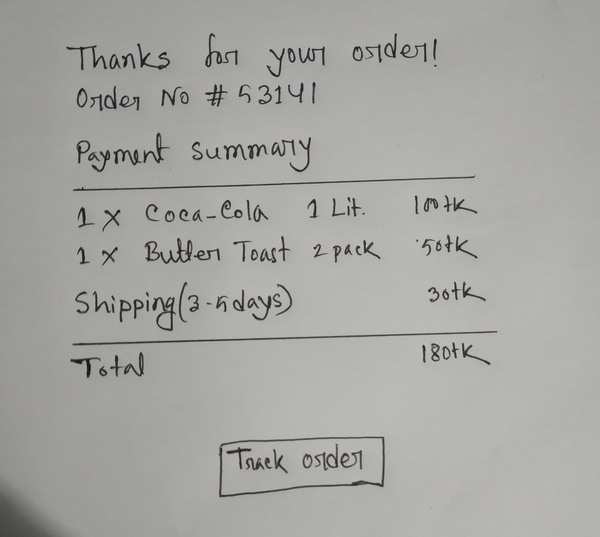 Thanks for your order!
Order No # 53141
Payment summary
1 x Coca-Cola 1 Lit. 100tk
1 x Butter Toast 2 pack 50tk
Shipping (3-5 days) 30tk
Total 180tk
Track order